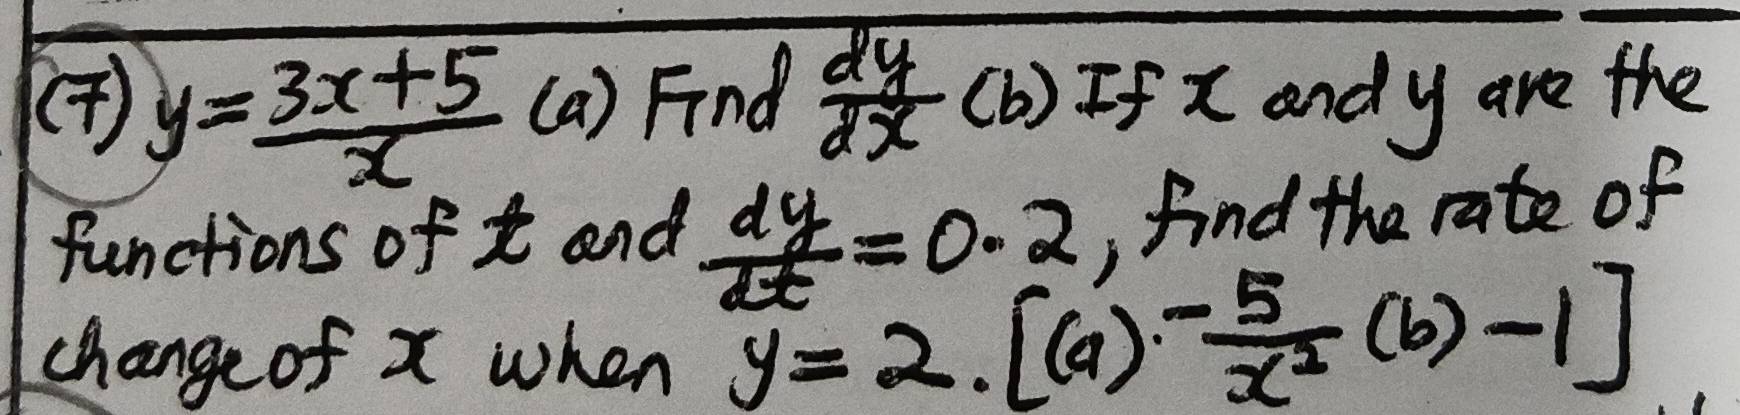 (7) y = \frac{3x+5}{x} (a) Find \frac{dy}{dx} (b) If x and y are the
functions of t and \frac{dy}{dt} = 0.2, find the rate of
change of x when y = 2. [(a) -\frac{5}{x^2} (b) -1]